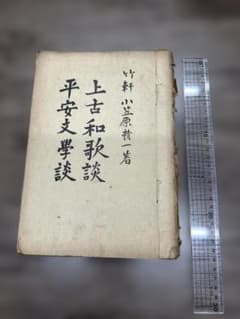 竹軒 小笠原精一著
上古和歌談
平安文學談